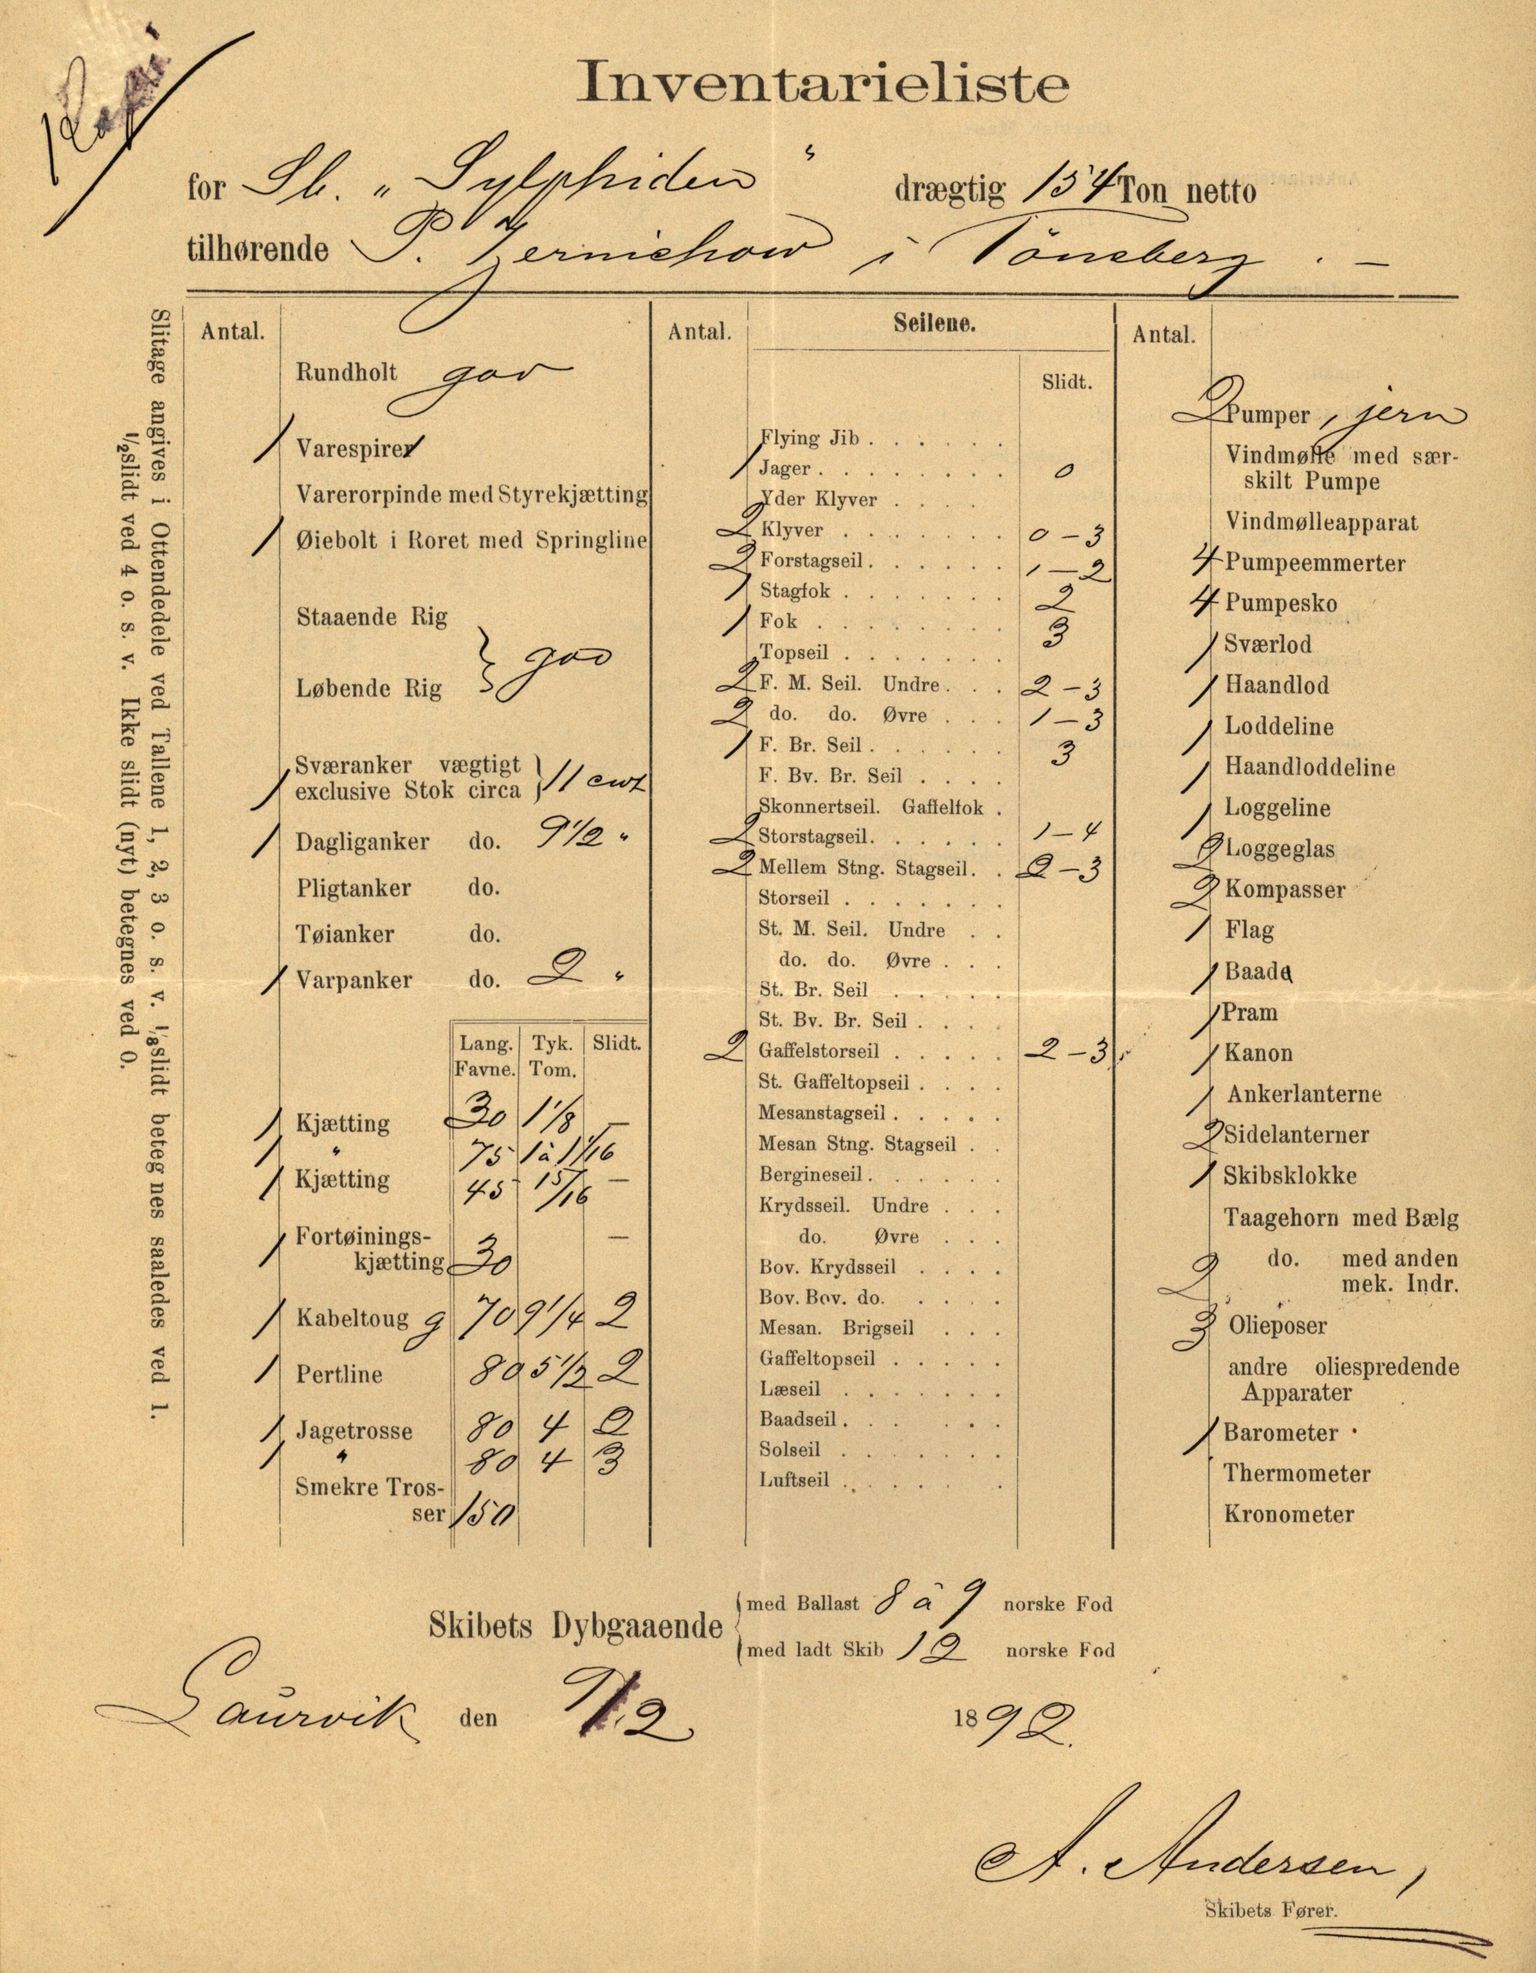 Kopi
Inventarieliste
for Sb. „Sylphiden“ drægtig 154 Ton netto
tilhørende P. Jernichow i Tönsberg. —
Slitage angives i Ottendedele ved Tallene 1, 2, 3 o. s. v. 1/8 slidt beteg nes saaledes ved 1.
1/2 slidt ved 4 o. s. v. Ikke slidt (nyt) betegnes ved 0.
Antal.
Rundholt god
1 Varespirer
Varerorpinde med Styrekjætting
1 Øiebolt i Roret med Springline
Staaende Rig
} god
Løbende Rig
Sværanker vægtigt
1 exclusive Stok circa } 11 cwt
1 Dagliganker do. 9 1/2 "
Pligtanker do.
Tøianker do.
1 Varpanker do. 2 "
Lang. Tyk. Slidt.
Favne. Tom.
1 Kjætting 30 1 1/8 —
1 " 75 1 à 1 1/16
1 Kjætting 45 15/16 —
Fortøinings-
1 kjætting 30 —
1 Kabeltoug g 70 9 1/4 2
1 Pertline 80 5 1/2 2
1 Jagetrosse 80 4 2
1 " 80 4 3
Smekre Tros-
ser 150
Antal. Seilene.
Slidt.
Flying Jib . . . . . .
1 Jager . . . . . . . 0
Yder Klyver . . . .
2 Klyver . . . . . . . 0 – 3
2 Forstagseil . . . . . . 1 – 2
1 Stagfok . . . . . . . 2
1 Fok . . . . . . . . 3
Topseil . . . . . . .
2 F. M. Seil. Undre . . . 2 – 3
2 do. do. Øvre . . . 1 – 3
1 F. Br. Seil . . . . . . 3
F. Bv. Br. Seil . . . .
Skonnertseil. Gaffelfok .
2 Storstagseil . . . . . . 1 – 4
2 Mellem Stng. Stagseil . . 2 – 3
Storseil . . . . . . .
St. M. Seil. Undre . .
do. do. Øvre . . .
St. Br. Seil . . . . .
St. Bv. Br. Seil . . . .
2 Gaffelstorseil . . . . . 2 – 3
St. Gaffeltopseil . . . .
Mesanstagseil . . . . .
Mesan Stng. Stagseil . .
Bergineseil . . . . . .
Krydsseil. Undre . . .
do. Øvre . . .
Bov. Krydsseil . . . .
Bov. Bov. do. . . . .
Mesan. Brigseil . . .
Gaffeltopseil . . . . .
Læseil . . . . . . .
Baadseil . . . . . .
Solseil . . . . . . .
Luftseil . . . . . .
Antal.
2 Pumper, jern
Vindmølle med sær-
skilt Pumpe
Vindmølleapparat
4 Pumpeemmerter
4 Pumpesko
1 Sværlod
1 Haandlod
1 Loddeline
1 Haandloddeline
1 Loggeline
2 Loggeglas
2 Kompasser
1 Flag
1 Baade
1 Pram
1 Kanon
1 Ankerlanterne
2 Sidelanterner
1 Skibsklokke
Taagehorn med Bælg
2 do. med anden
mek. Indr.
3 Olieposer
andre oliespredende
Apparater
1 Barometer
Thermometer
Kronometer
Skibets Dybgaaende
med Ballast 8 à 9 norske Fod
med ladt Skib 12 norske Fod
Laurvik den 9/12 1892.
A. Andersen,
Skibets Fører.